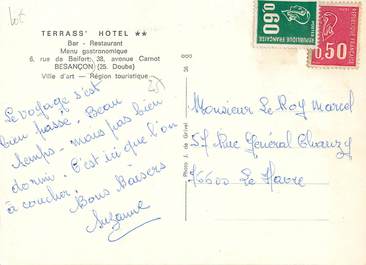 Lot
TERRASS' HOTEL ★★
Bar - Restaurant
Menu gastronomique
6, rue de Belfort, 38, avenue Carnot
BESANÇON (25. Doubs)
Ville d'art — Région touristique
Le voyage s'est
bien passé. Beau
temps - mais pas bien
dormi. C'est ici que l'on
a couché.
Bons Baisers
Suzanne
Photo J. de Grivel
0.60
POSTES
REPUBLIQUE FRANÇAISE
0,50
Monsieur Le Roy Marcel
57 Rue Général Chanzy
76600 Le Havre